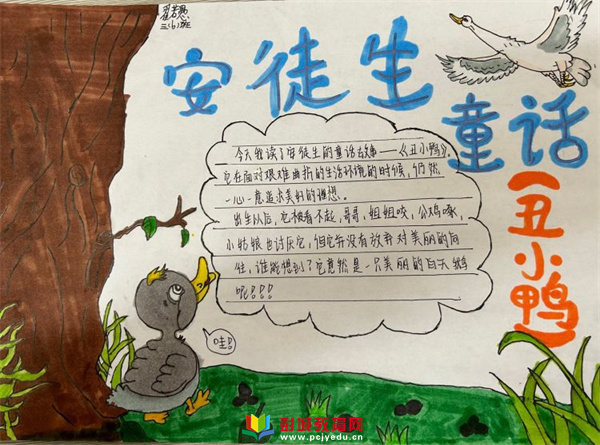 三(6)班
安徒生
童话
(丑小鸭)
今天我读了安徒生的童话故事——《丑小鸭》.
它在面对艰难曲折的生活环境的时候,仍然
一心一意追求美好的理想.
出生以后,它被看不起,哥哥,姐姐咬,公鸡啄,
小姑娘也讨厌它,但它并没有放弃对美丽的向
往,谁能想到了它竟然是一只美丽的白天鹅
呢!!!
哇!
彭城教育网
www.pcjyedu.cn